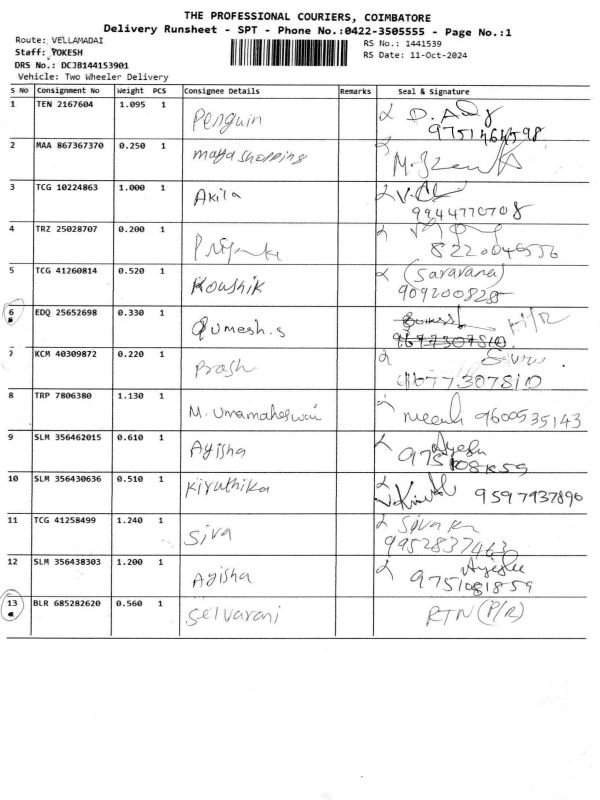 THE PROFESSIONAL COURIERS, COIMBATORE
Delivery Runsheet - SPT - Phone No.:0422-3505555 - Page No.:1
Route: VELLAMADAI
RS No.: 1441539
Staff: YOKESH
RS Date: 11-Oct-2024
DRS No.: DCJB144153901
Vehicle: Two Wheeler Delivery
S No Consignment No Weight PCS Consignee Details Remarks Seal & Signature
1 TEN 2167604 1.095 1 Penguin
9751464598
2 MAA 867367370 0.250 1 maya shopping
3 TCG 10224863 1.000 1 Akila
9944770708
4 TRZ 25028707 0.200 1 Priyanka
5 TCG 41260814 0.520 1 Koushik (Saravana)
909200828
6 EDQ 25652698 0.330 1 Qumesh.s
9677307810
7 KCM 40309872 0.220 1 Prash
9677307810
8 TRP 7806380 1.130 1 M. Umamaheswai 9600535143
9 SLM 356462015 0.610 1 Ayisha Ayesha
10 SLM 356430636 0.510 1 Kiruthika 9597937896
11 TCG 41258499 1.240 1 Siva
9952837463
12 SLM 356438303 1.200 1 Ayisha
9751081859
13 BLR 685282620 0.560 1 Selvarani RTN (P/R)